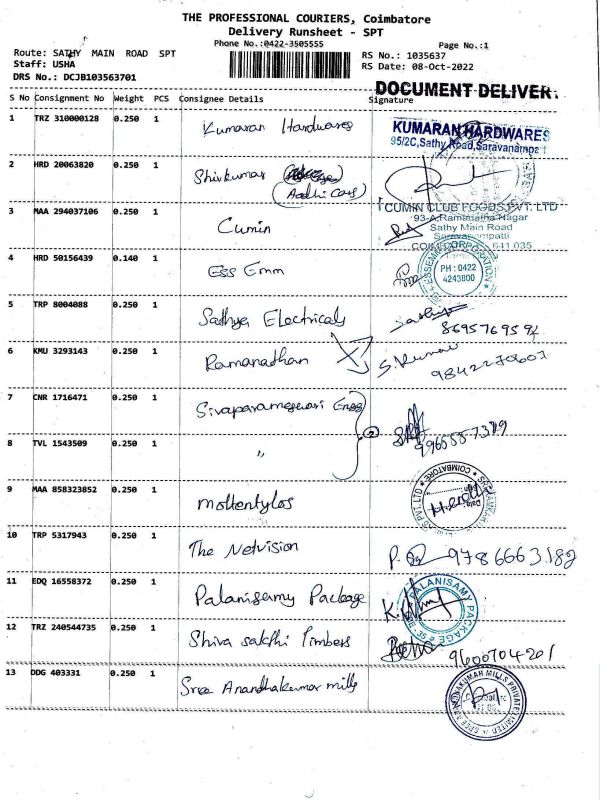 THE PROFESSIONAL COURIERS, Coimbatore
Delivery Runsheet - SPT
Phone No.:0422-3505555
Page No.:1
Route: SATHY MAIN ROAD SPT
RS No.: 1035637
Staff: USHA
RS Date: 08-Oct-2022
DRS No.: DCJB103563701
DOCUMENT DELIVER
S No Consignment No Weight PCS Consignee Details Signature
1 TRZ 310000128 0.250 1 Kumaran Hardwares
KUMARAN HARDWARES
95/2C, Sathy Road, Saravanampatti
2 HRD 20063820 0.250 1 Shivkumar
(Aadhi Cars)
3 MAA 294037106 0.250 1 Cumin
CUMIN CLUB FOODS PVT. LTD
93-A, Ramanatha Nagar
Sathy Main Road
Saravanampatti
641 035
4 HRD 50156439 0.140 1 Ess Emm
ESSEMM CORPORATION
PH : 0422
4243800
5 TRP 8004088 0.250 1 Sathya Electricals
8695769594
6 KMU 3293143 0.250 1 Ramanathan
S. Kumar
9842270607
7 CNR 1716471 0.250 1 Sivaparameswari Engg
2
9965557379
8 TVL 1543509 0.250 1 "
9 MAA 858323852 0.250 1 moltentylos
COIMBATORE
PVT. LTD
10 TRP 5317943 0.250 1 The Netvision
9786663182
11 EDQ 16558372 0.250 1 Palanisamy Package
PALANISAMY PACKAGE
12 TRZ 240544735 0.250 1 Shiva sakthi Timbers
9600704201
13 DDG 403331 0.250 1 Sree Anandhakumar mills
SREE ANANDHAKUMAR MILLS PRIVATE LIMITED